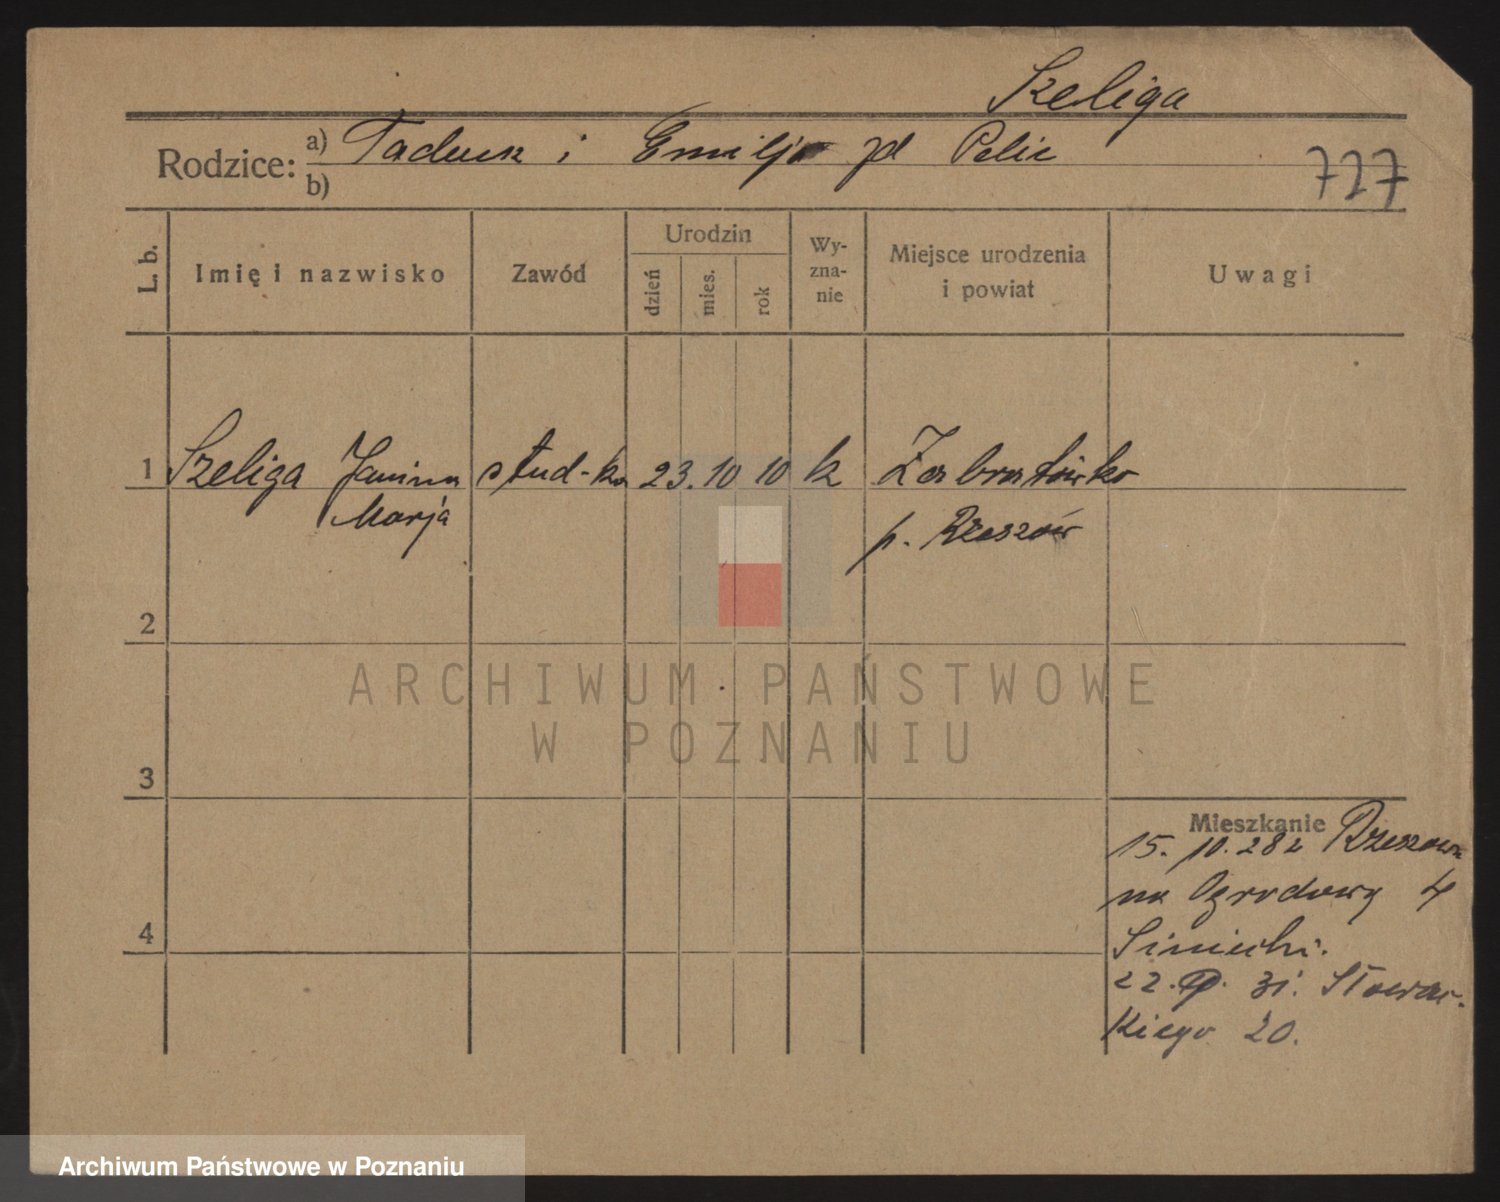 Szeliga
Rodzice: a) Tadeusz i Emilja zd Pelic
b)
727
L. b.
Imię i nazwisko
Zawód
Urodzin
dzień
mies.
rok
Wy-
zna-
nie
Miejsce urodzenia
i powiat
Uwagi
1 Szeliga Janina stud-ka 23. 10 10 k Zabratówka
Marja
p. Rzeszów
2
3
4
Mieszkanie
15. 10. 28 z Rzeszowa
na Ogrodową 4
22. 31. Słowac-
kiego 20.
ARCHIWUM PAŃSTWOWE
W POZNANIU
Archiwum Państwowe w Poznaniu